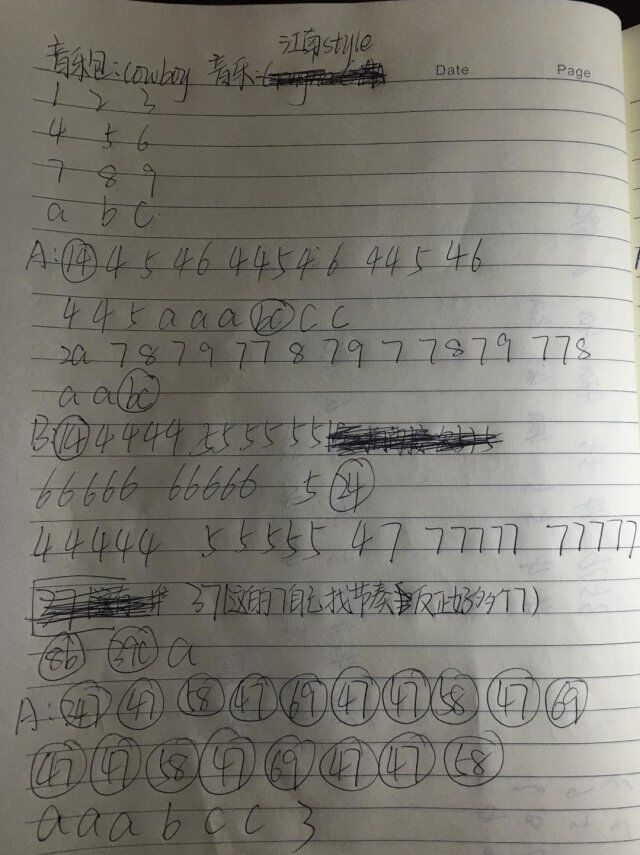 江南style
音乐包:cowboy 音乐: Date Page
1 2 3
4 5 6
7 8 9
a b c
A:14 4 5 46 44546 445 46
4 4 5 a a a bc c c
2a 7 8 7 9 77 8 79 7 7 8 7 9 7 7 8
a a bc
B:14 4 4 4 4 5 5 5 5 5
66666 66666 5 24
44444 55555 47 77777 77777
37(这的7自己找节奏 反正好多个7)
8b 39c a
A:247 47 58 47 69 47 47 58 47 69
47 47 58 47 69 47 47 58
a a a b c c 3